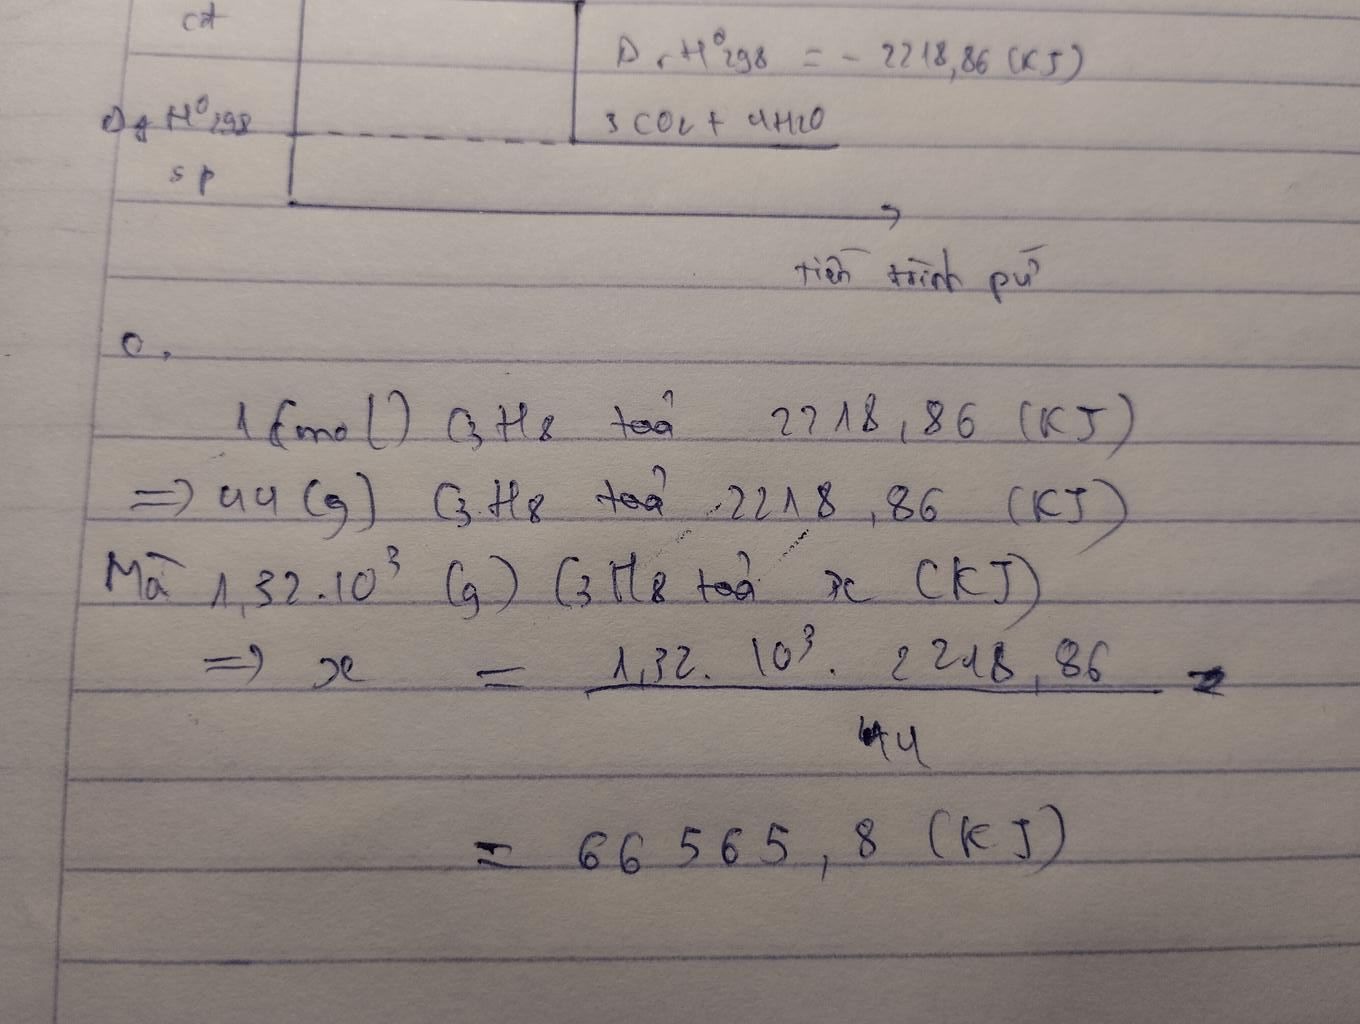 cđ
ΔrH⁰298 = - 2218,86 (KJ)
ΔfH⁰298
3CO2 + 4H2O
sp
tiến trình pứ
c,
1 (mol) C3H8 toả 2218,86 (KJ)
=> 44 (g) C3H8 toả 2218,86 (KJ)
Mà 1,32.10³ (g) C3H8 toả x (KJ)
=> x = 1,32. 10³. 2218,86 =
44
= 66565,8 (KJ)